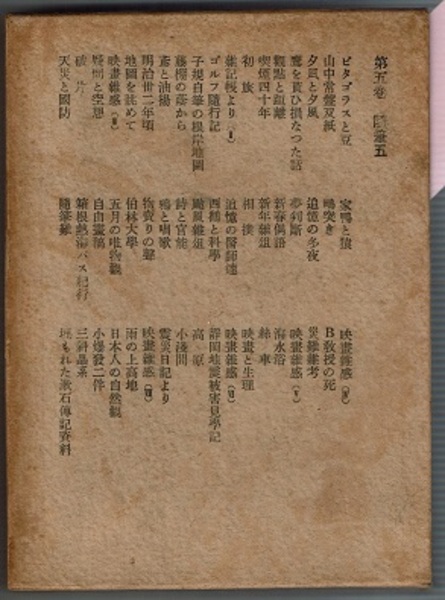 第五卷 隨筆五
ピタゴラスと豆
山中常盤双紙
夕凪と夕風
鷹を貰ひ損なつた話
觀點と距離
喫煙四十年
初旅
雜記帳より(Ⅱ)
ゴルフ隨行記
子規自筆の根岸地圖
藤棚の蔭から
鳶と油揚
明治卅二年頃
地圖を眺めて
映畫雜感(Ⅲ)
疑問と空想
破片
天災と國防
家鴨と猿
鴫突き
追憶の冬夜
夢判斷
新春偶語
新年雜俎
相撲
追憶の醫師達
西鶴と科學
颱風雜俎
詩と官能
鴉と唱歌
物賣りの聲
伯林大學
五月の唯物觀
自由畫稿
箱根熱海バス紀行
隨筆難
映畫雜感(Ⅳ)
B教授の死
災難雜考
映畫雜感(Ⅴ)
海水浴
絲車
映畫と生理
映畫雜感(Ⅵ)
靜岡地震被害見學記
高原
小淺間
震災日記より
映畫雜感(Ⅶ)
雨の上高地
日本人の自然觀
小爆發二件
三斜晶系
埋もれた漱石傳記資料